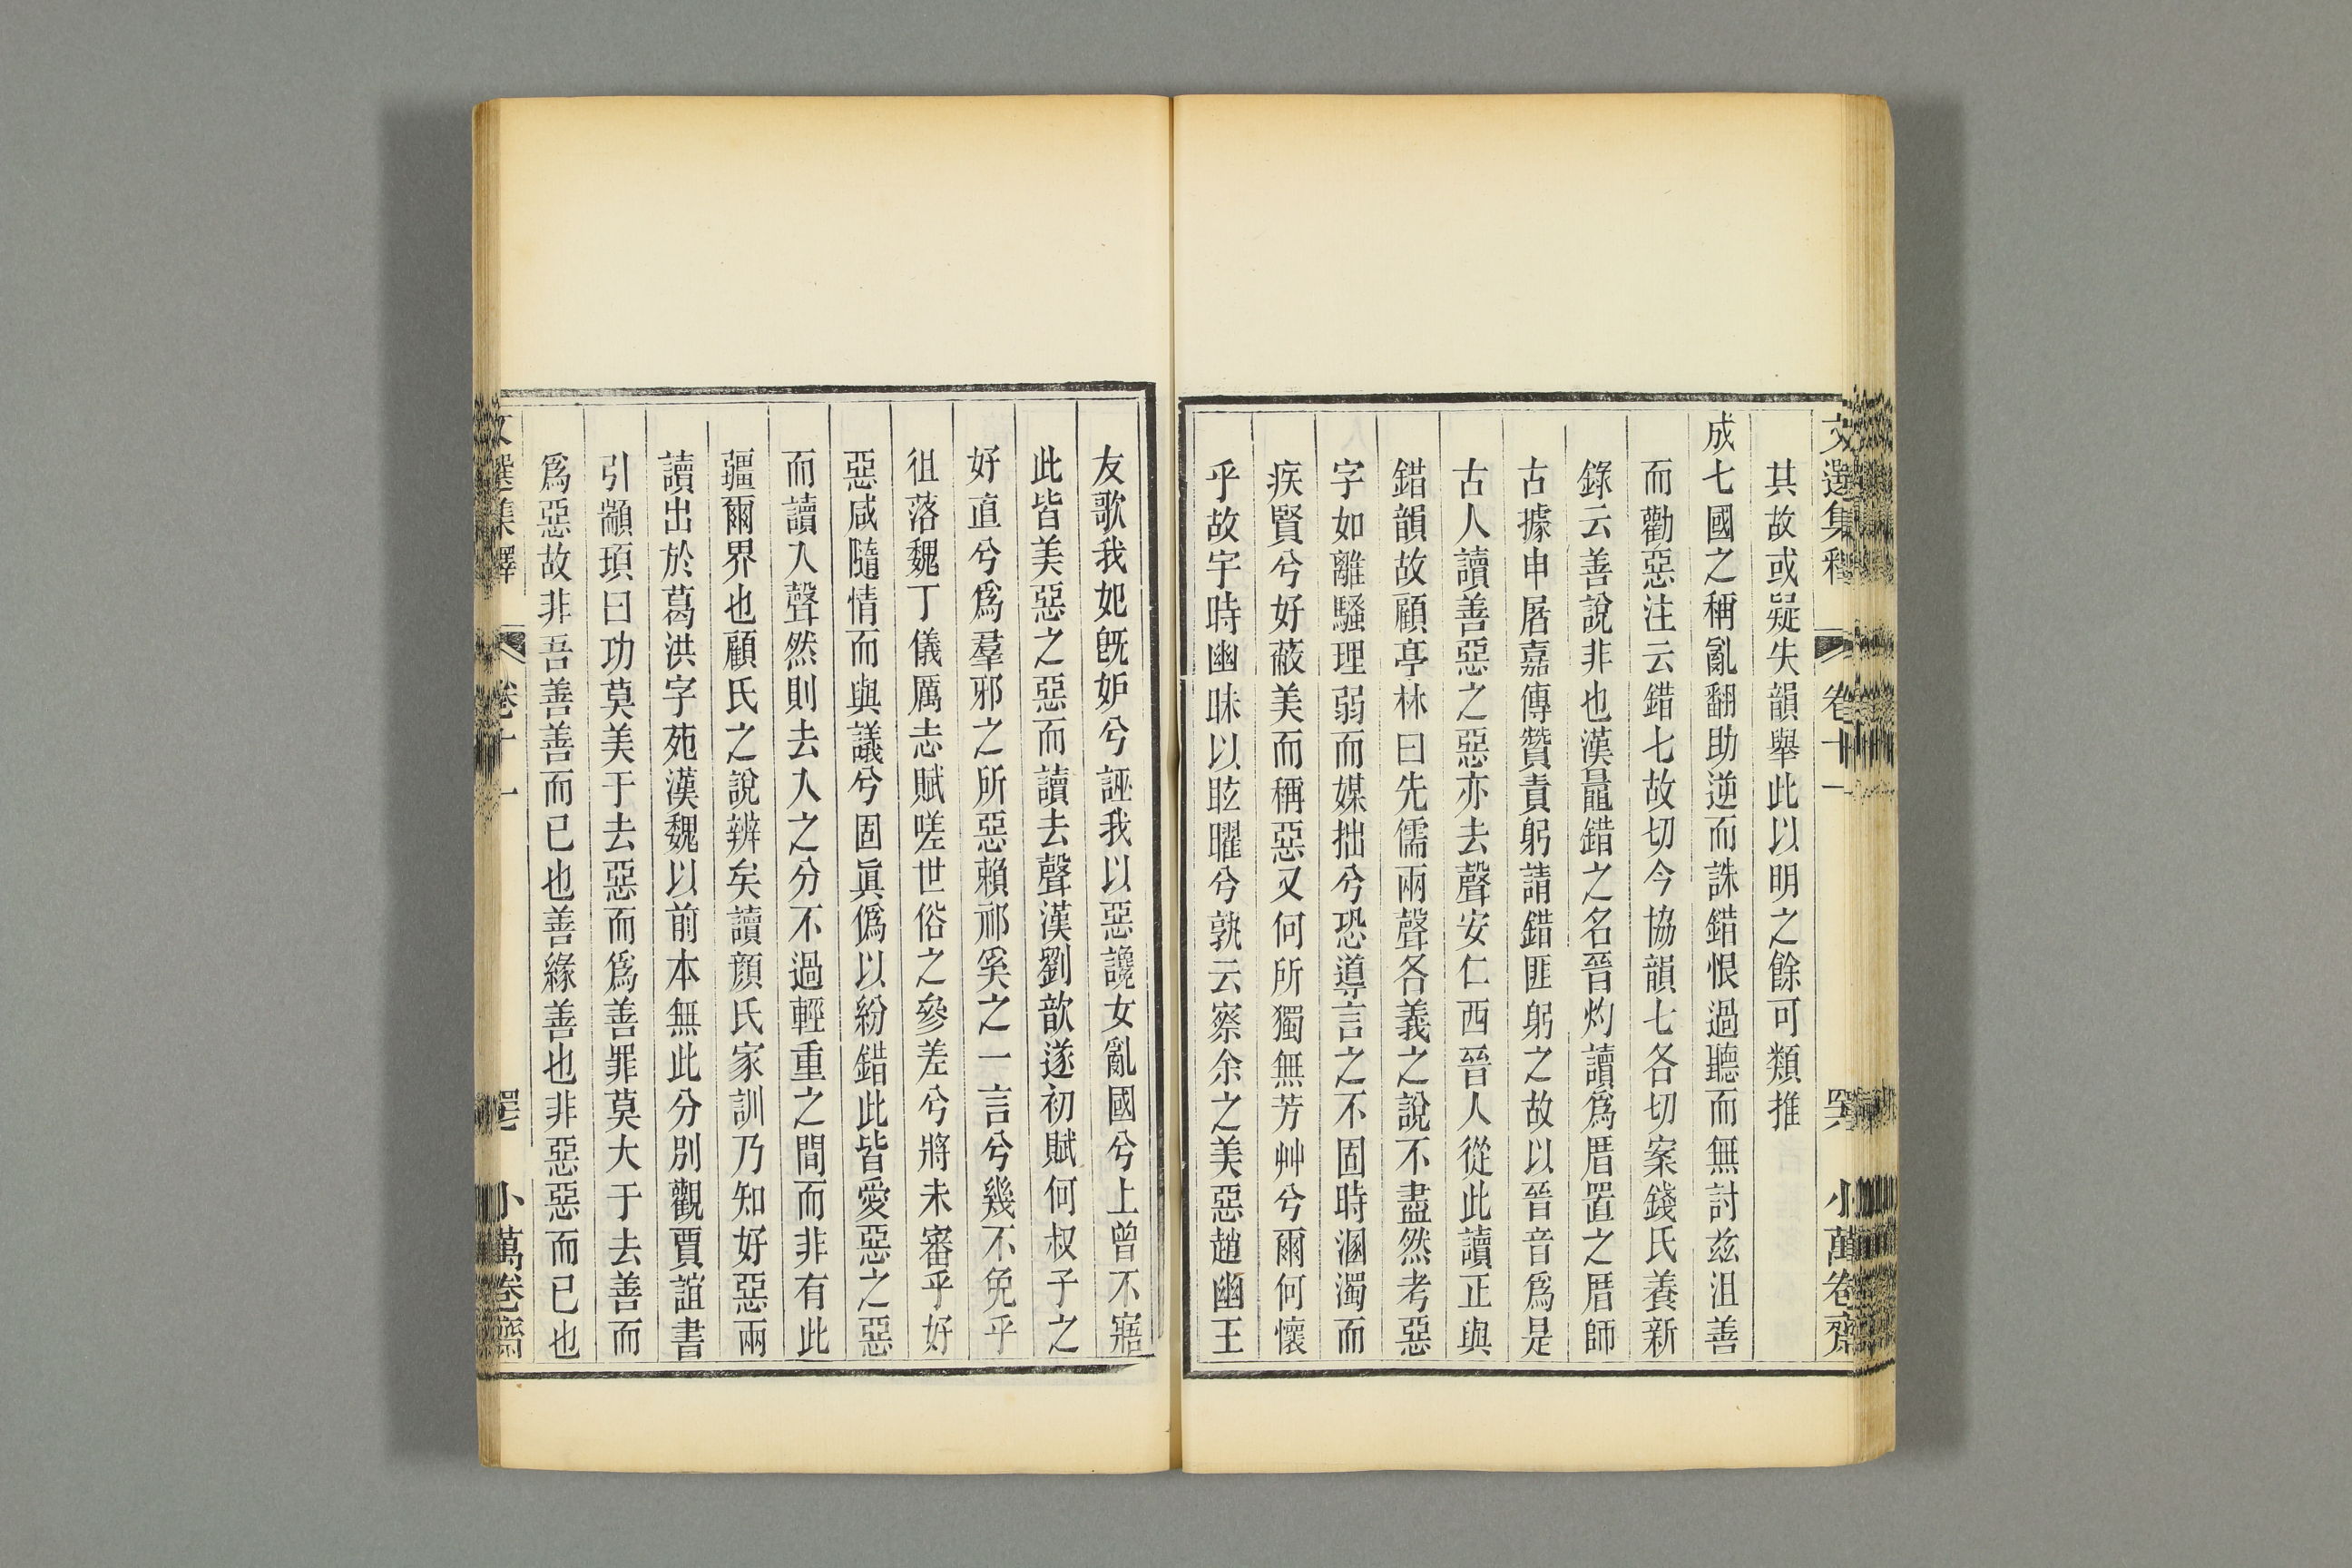 文選集釋 卷十一 小萬卷齋
其故或疑失韻舉此以明之餘可類推
成七國之稱亂翻助逆而誅錯恨過聽而無討兹沮善
而勸惡注云錯七故切今協韻七各切案錢氏養新
錄云善說非也漢鼂錯之名晉灼讀爲厝置之厝師
古據申屠嘉傳贊責躬請錯匪躬之故以晉音爲是
古人讀善惡之惡亦去聲安仁西晉人從此讀正與
錯韻故顧亭林曰先儒兩聲各義之說不盡然考惡
字如離騷理弱而媒拙兮恐導言之不固時溷濁而
疾賢兮好蔽美而稱惡又何所獨無芳艸兮爾何懷
乎故宇時幽昧以眩曜兮孰云察余之美惡趙幽王
友歌我妃旣妒兮誣我以惡讒女亂國兮上曾不寤
此皆美惡之惡而讀去聲漢劉歆遂初賦何叔子之
好直兮爲羣邪之所惡賴祁奚之一言兮幾不免乎
徂落魏丁儀厲志賦嗟世俗之參差兮將未審乎好
惡咸隨情而與議兮固眞僞以紛錯此皆愛惡之惡
而讀入聲然則去入之分不過輕重之間而非有此
疆爾界也顧氏之說辨矣讀顏氏家訓乃知好惡兩
讀出於葛洪字苑漢魏以前本無此分別觀賈誼書
引顓頊曰功莫美于去惡而爲善罪莫大于去善而
爲惡故非吾善善而已也善緣善也非惡惡而已也
文選集釋 卷十一 小萬卷齋